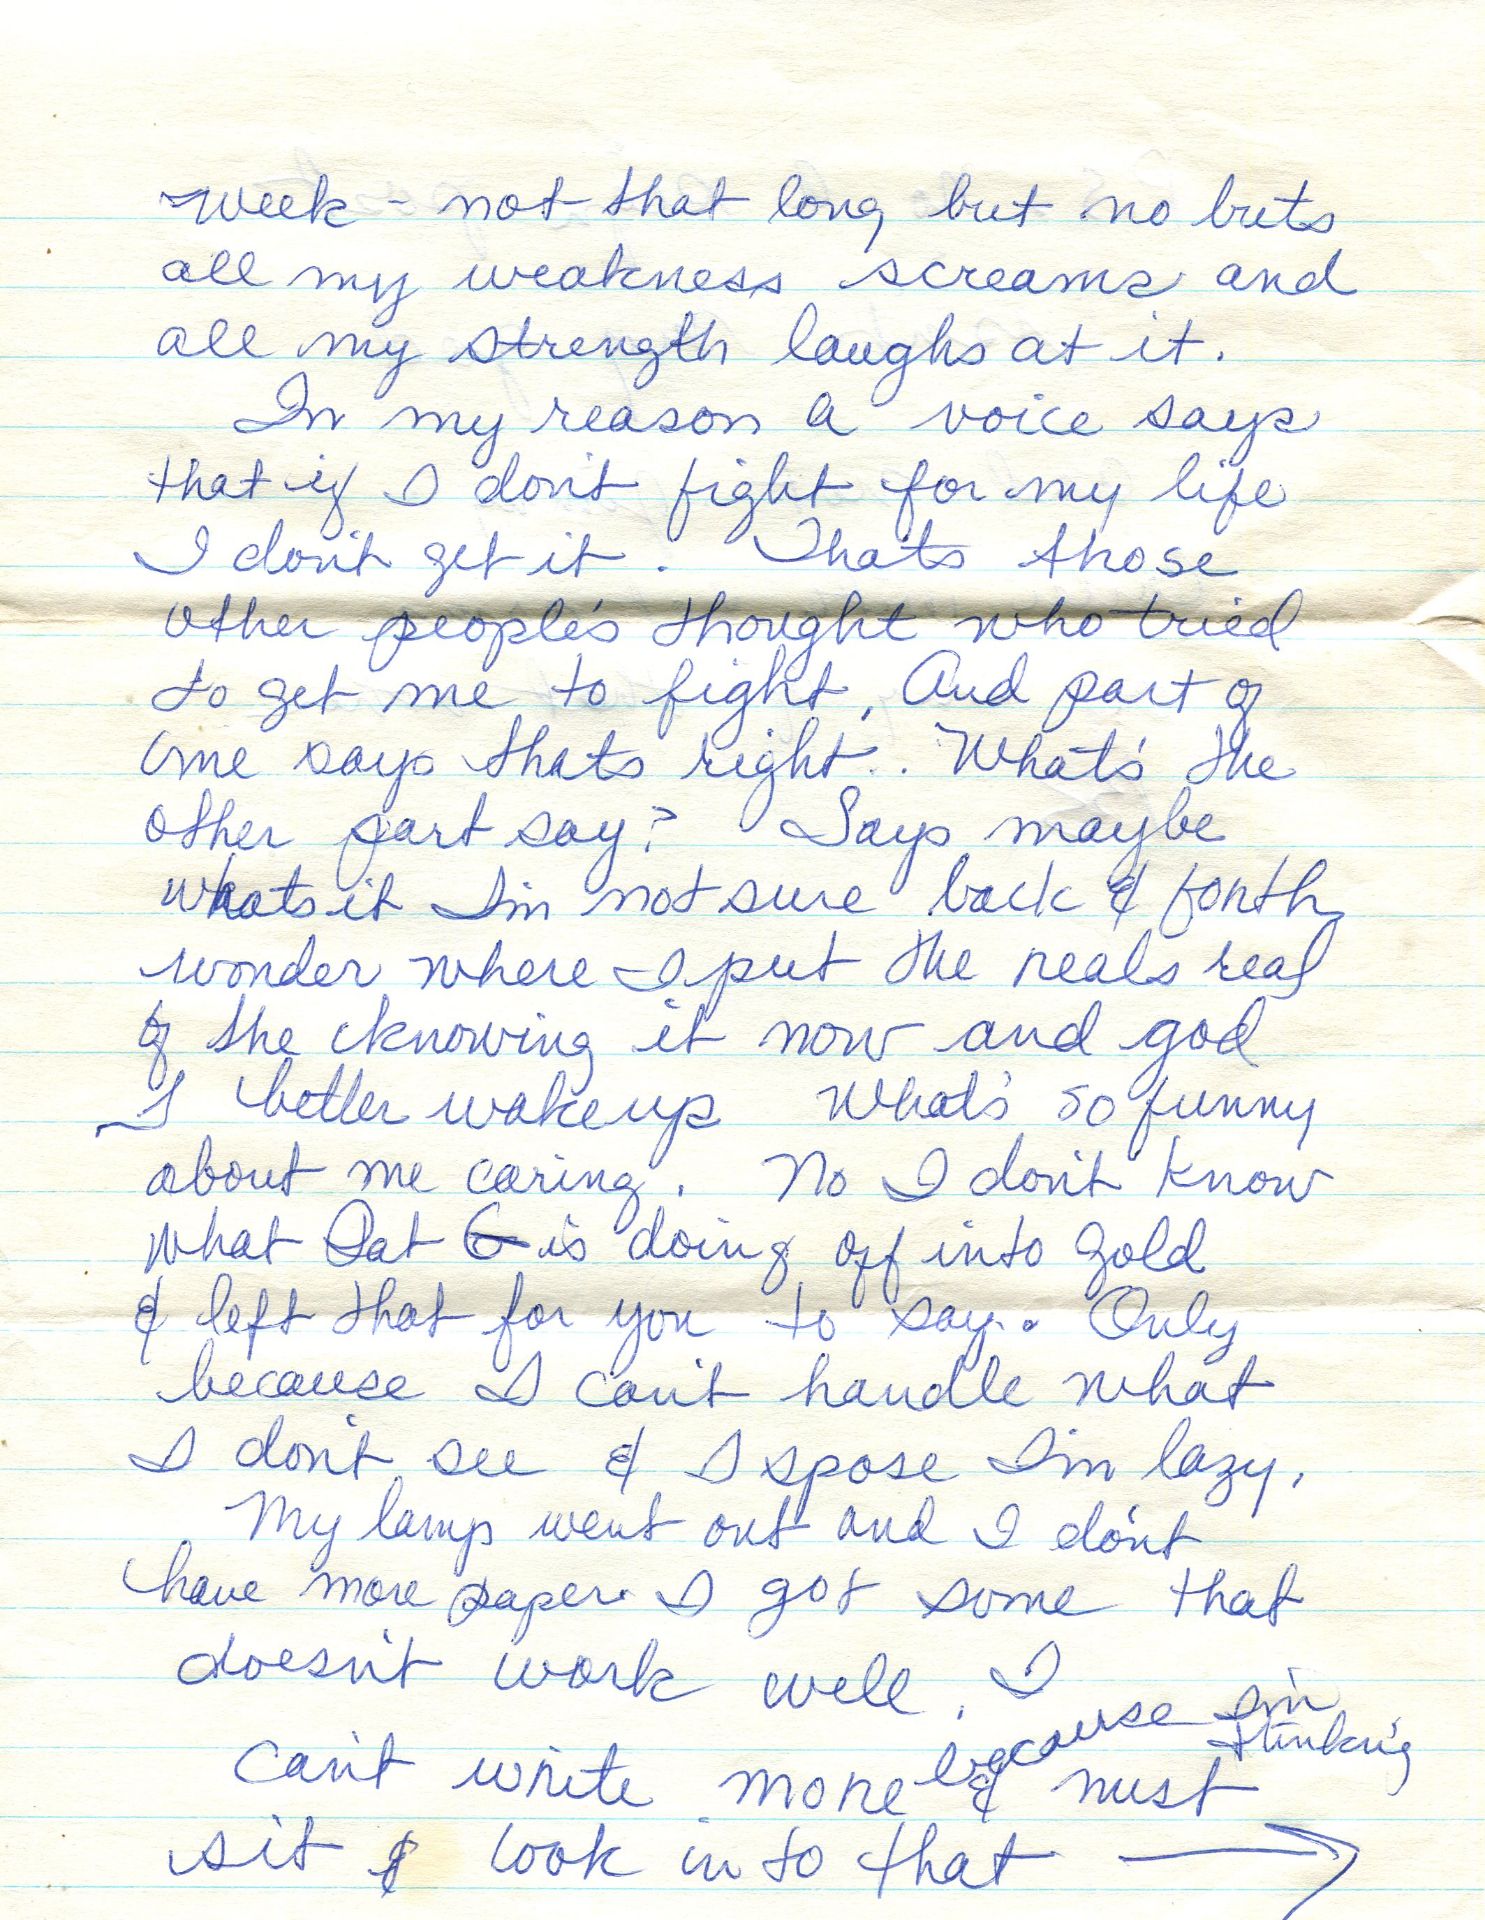 week - not that long but no buts
all my weakness screams and
all my strength laughs at it.
In my reason a voice says
that if I don't fight for my life
I don't get it. Thats those
other people's thought who tried
to get me to fight, And part of
me says thats right.. What's the
other part say? Says maybe
whats it I'm not sure back & forth
wonder where I put the reals real
of the knowing it now and god
I better wake up What's so funny
about me caring. No I don't know
what Pat G is doing off into gold
& left that for you to say. Only
because I can't handle what
I don't see & I spose I'm lazy.
My lamp went out and I don't
have more paper. I got some that
doesn't work well. I
can't write more because I'm thinking
& must
sit & look into that